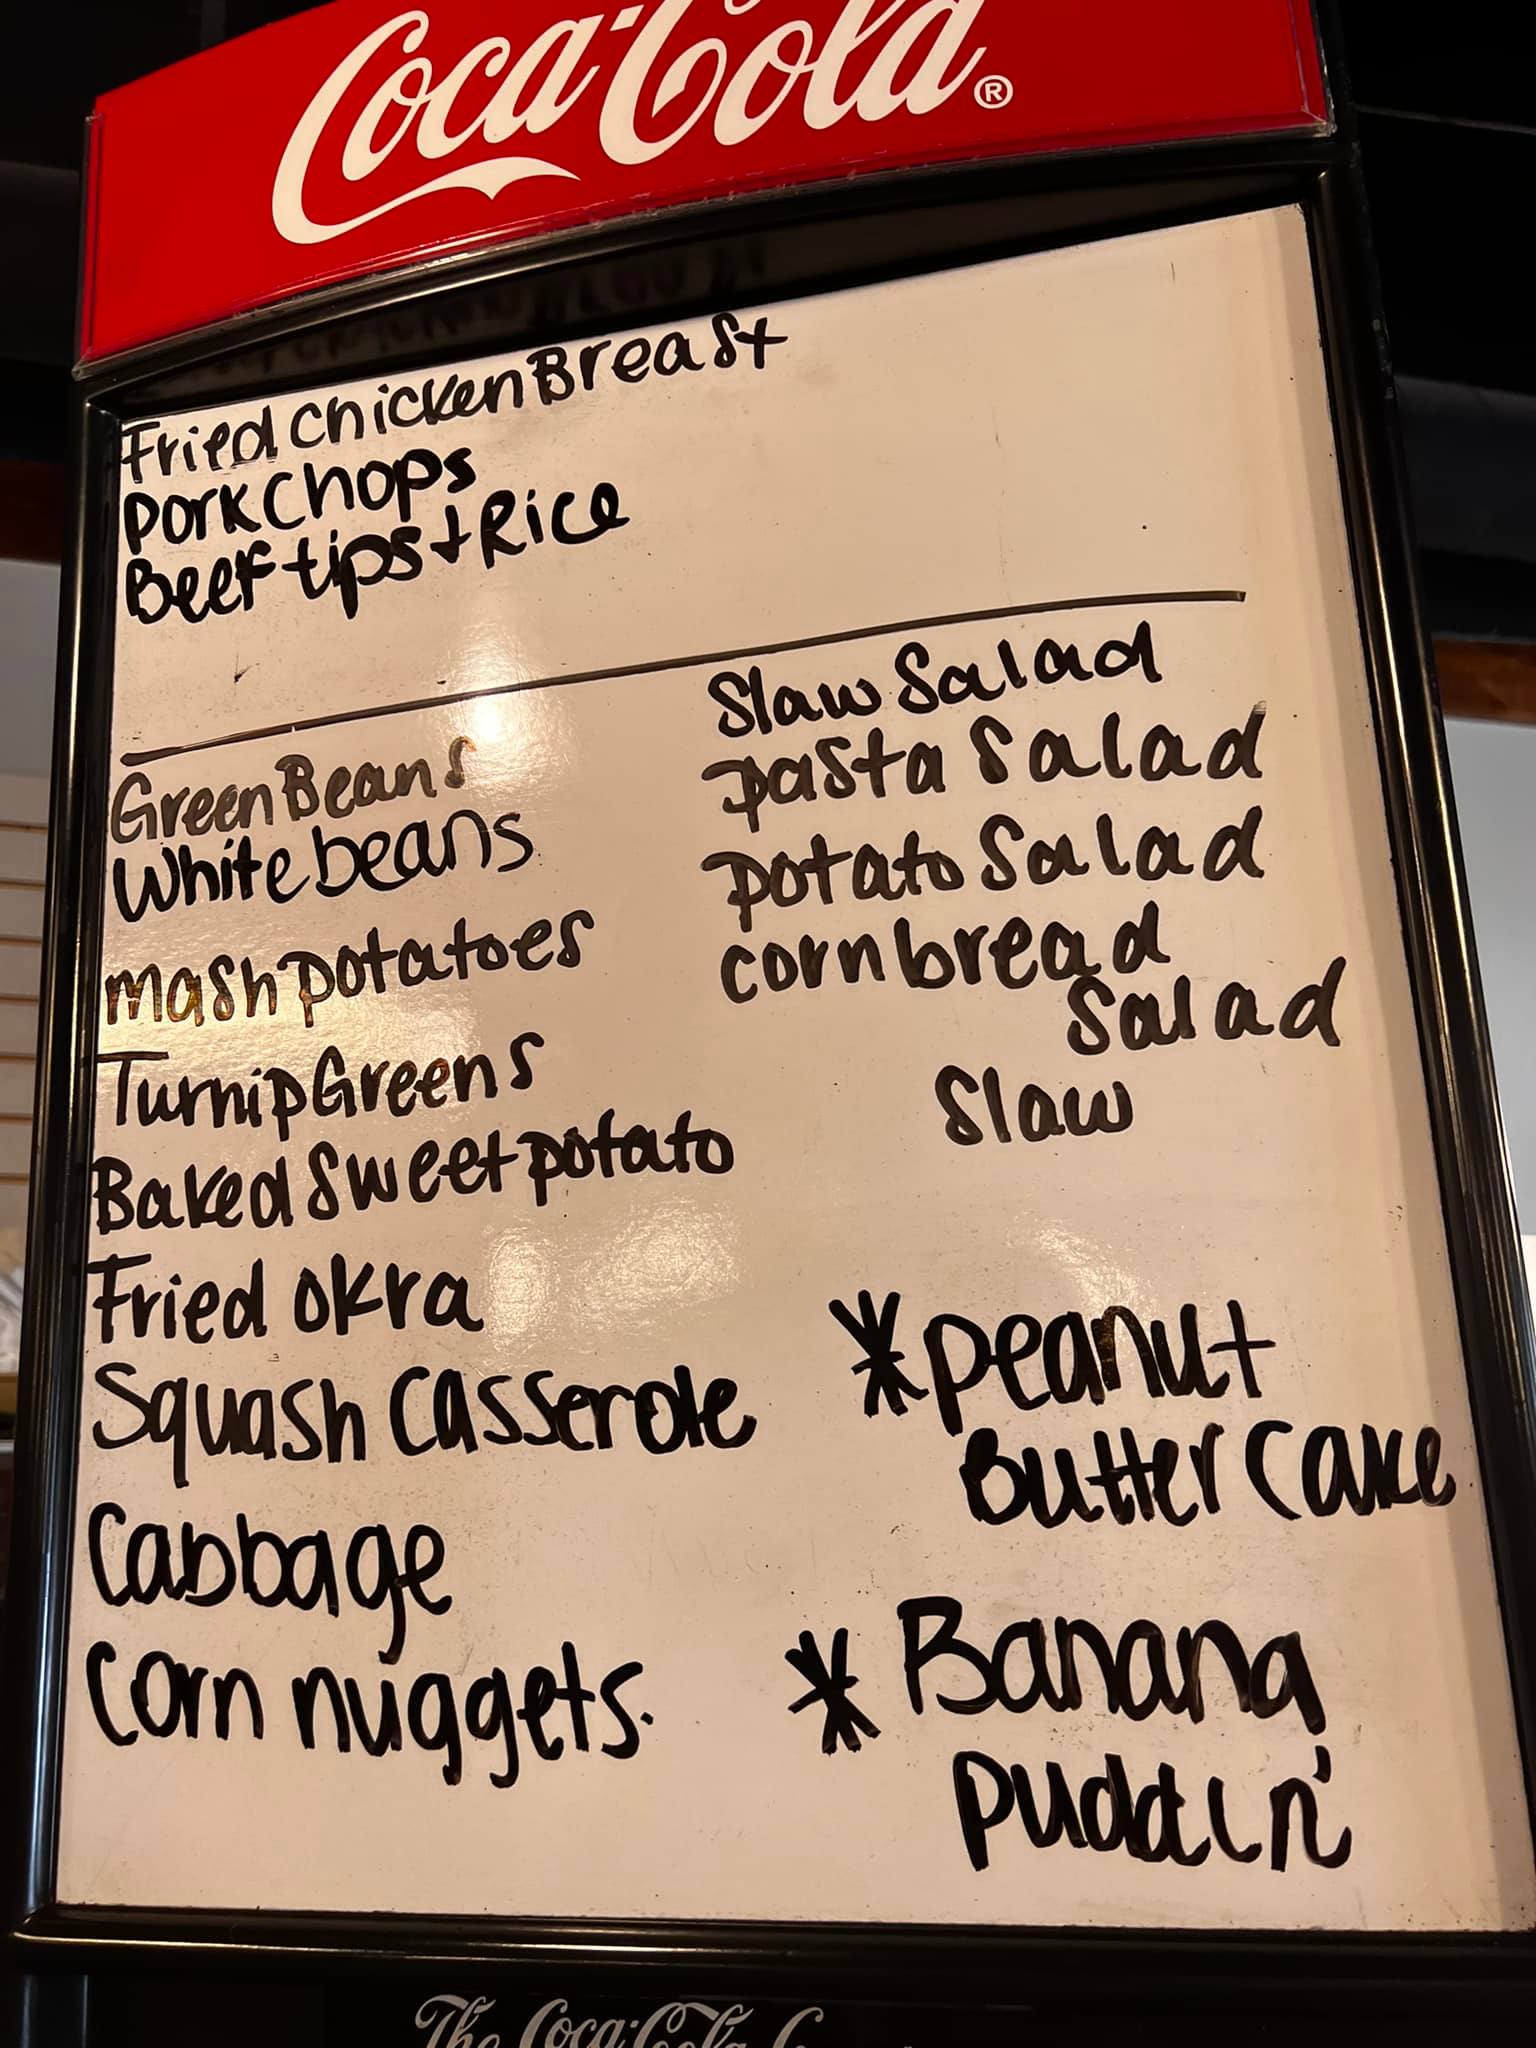 Coca-Cola®
Fried Chicken Breast
Pork Chops
Beef tips + Rice
Green Beans
White beans
mash potatoes
Turnip Greens
Baked Sweet potato
Fried okra
Squash Casserole
Cabbage
Corn nuggets.
Slaw Salad
pasta Salad
potato Salad
cornbread
Salad
Slaw
*peanut
Butter Cake
* Banana
Puddin'
The Coca-Cola C